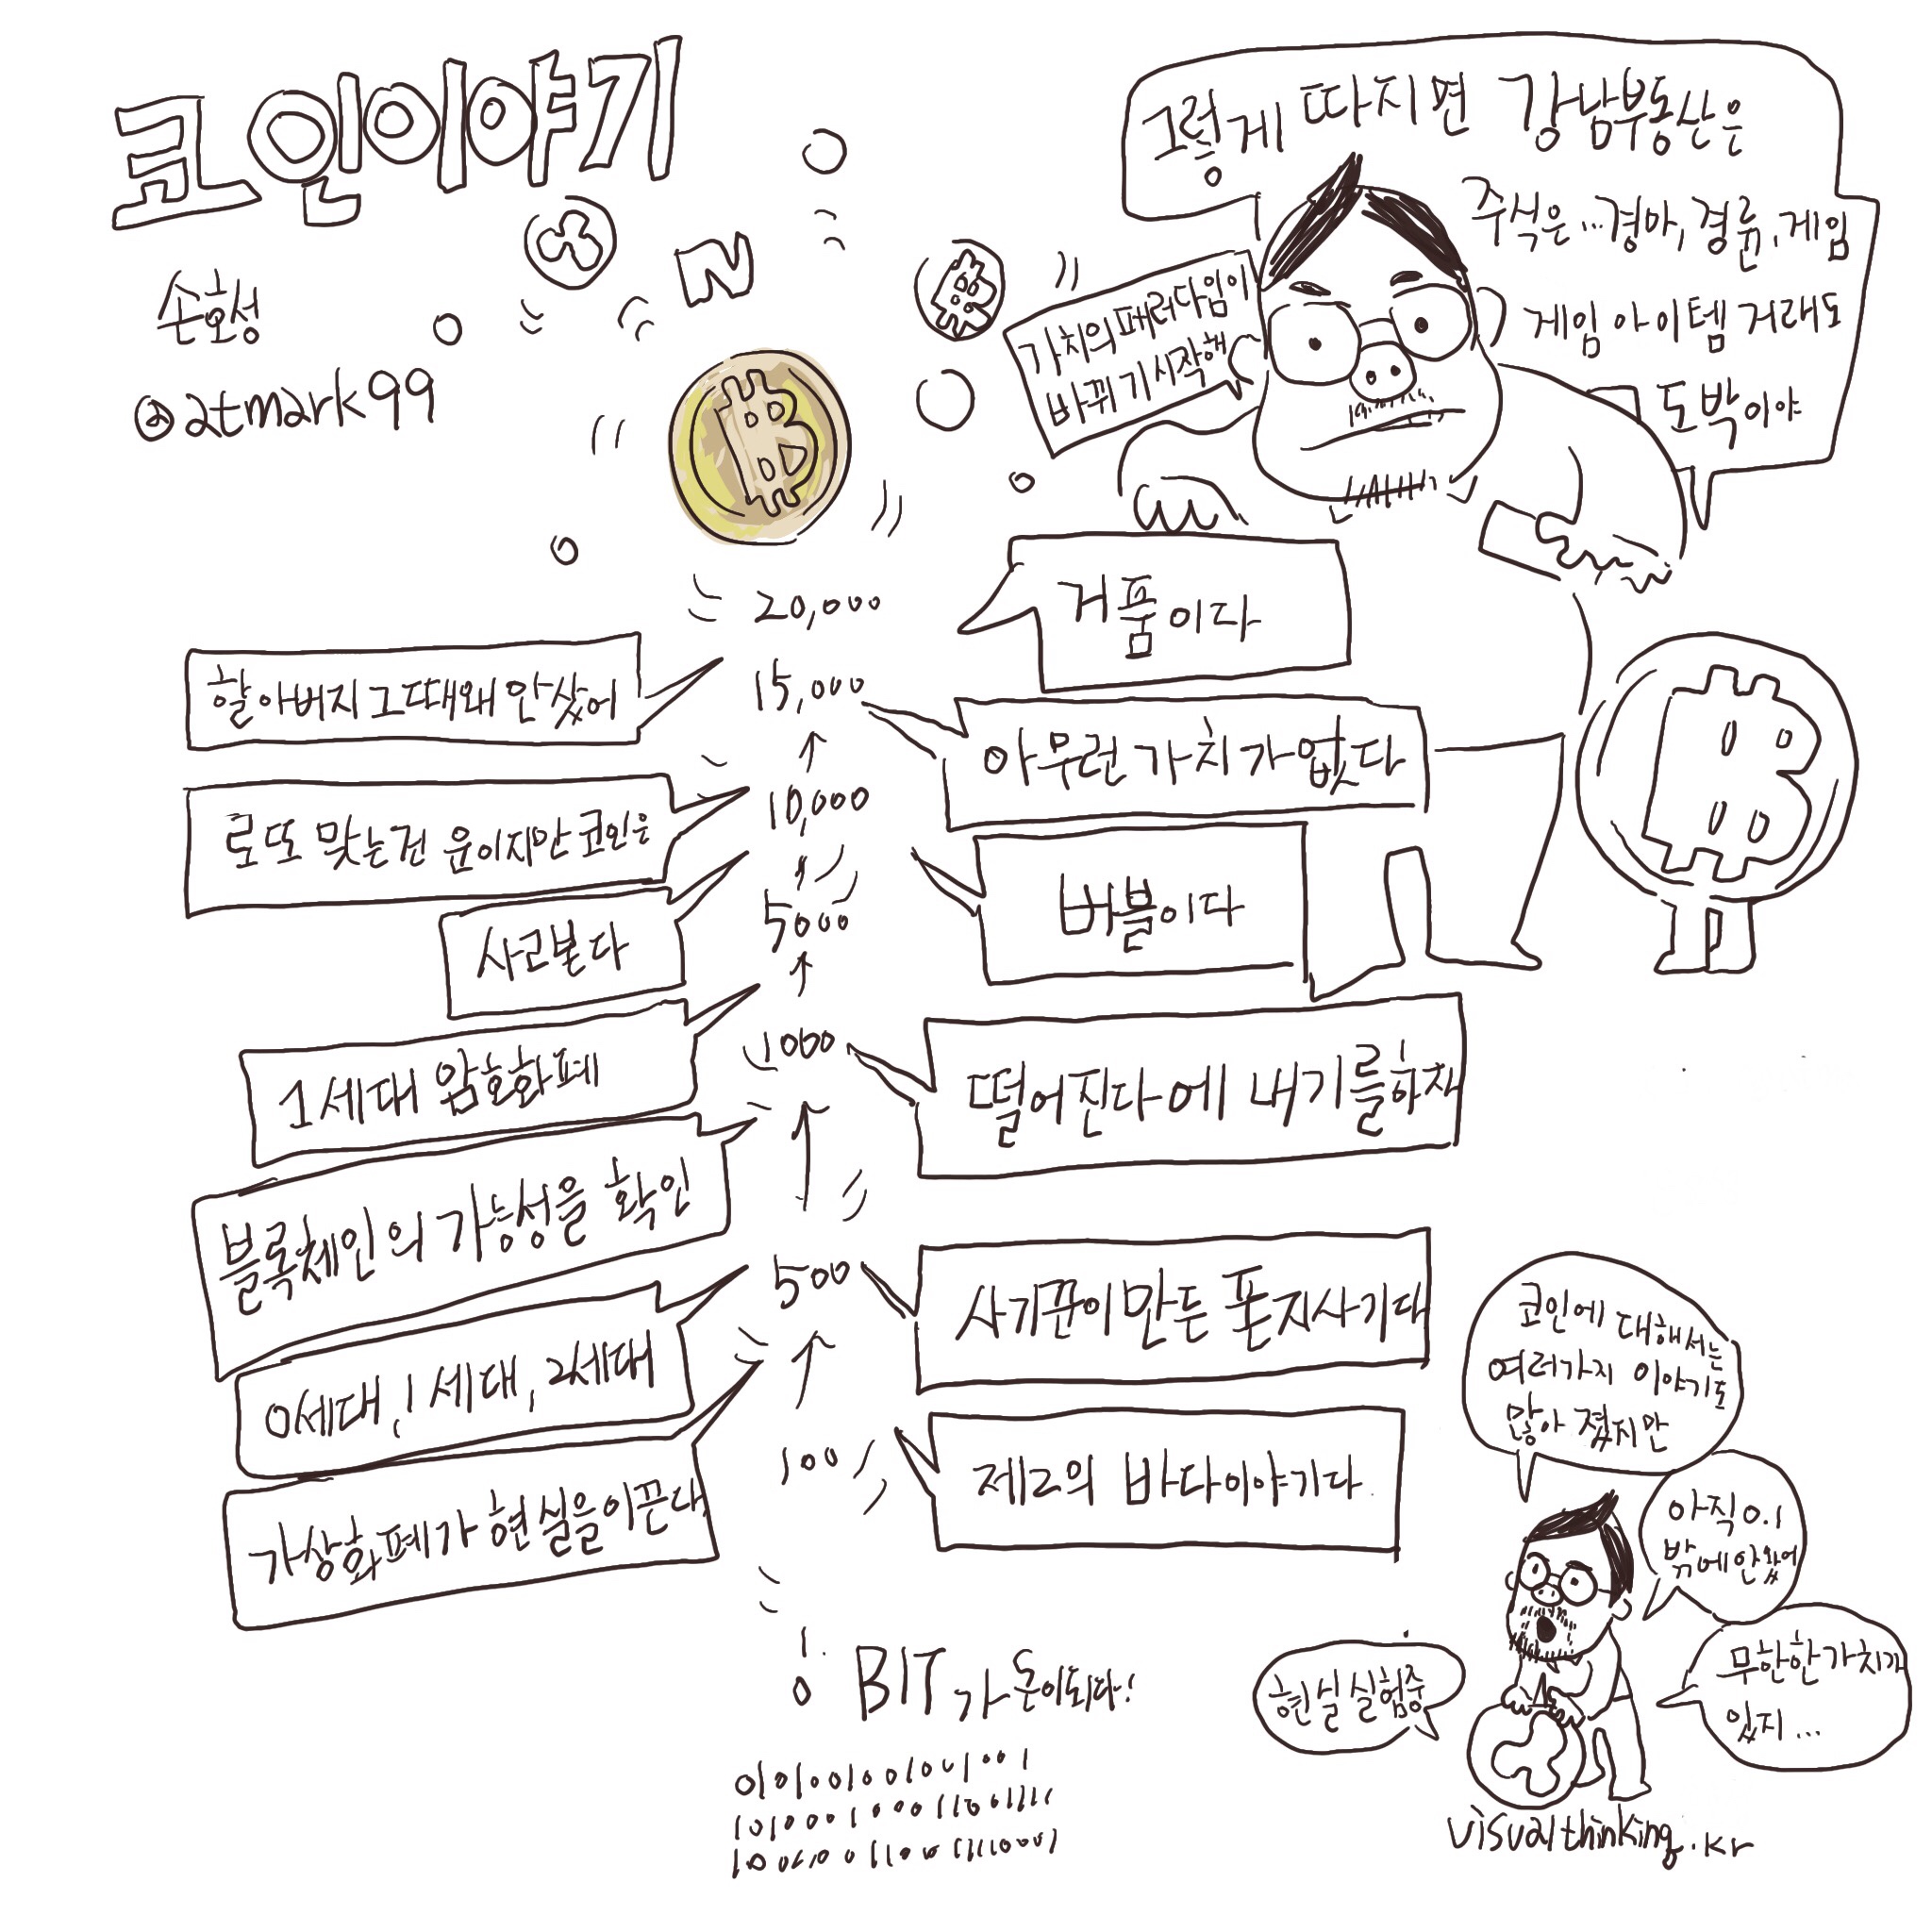 코인이야기
손호성
@atmark99
N
B
B
그렇게 따지면 강남부동산은
주식은...경마,경륜,게임
게임아이템거래도
도박이야
가치의패러다임이
바뀌기시작해
20,000
거품이다
할아버지그때왜안샀어
15,000
아무런가치가없다
B
로또 맞는건 운이지만코인은
10,000
버블이다
사고본다
5000
1세대 암호화폐
1000
떨어진다에 내기를하자
블록체인의가능성을 확인
500
사기꾼이만든 폰지사기다
0세대, 1세대, 2세대
100
제2의 바다이야기다
가상화폐가현실을이끈다
코인에 대해서는
여러가지 이야기도
많아 졌지만
아직0.1
밖에안왔어
무한한가치가
있지...
현실실험중
1
0
BIT가돈이되다!
visualthinking.kr